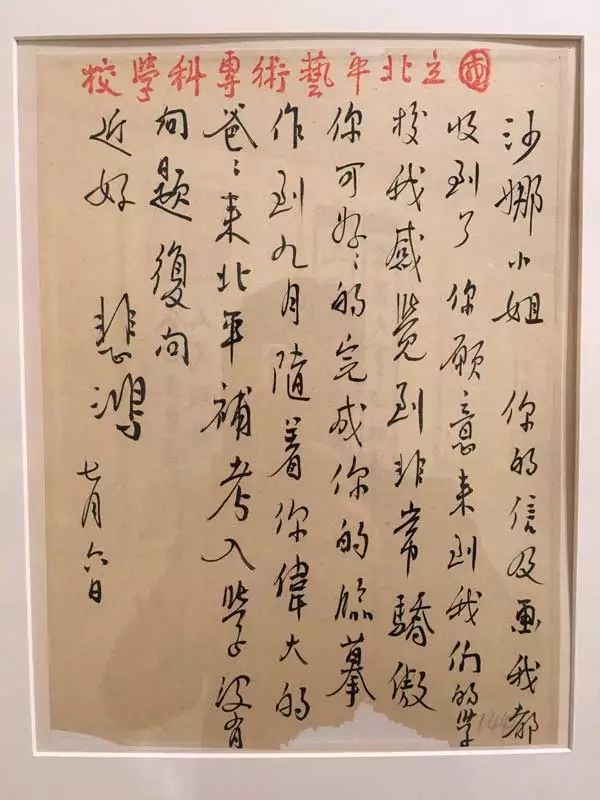 國立北平藝術專科學校
沙娜小姐 你的信及画我都
收到了你願意来到我们的学
校我感覺到非常驕傲
你可好〻的完成你的臨摹
作到九月隨着你偉大的
爸〻来北平補考入學没有
问題復问
近好
悲鴻
七月六日